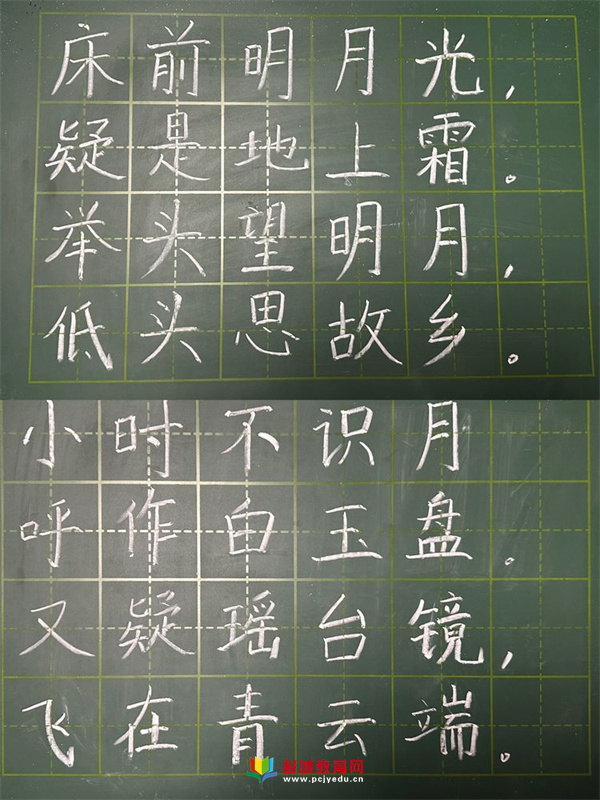 床前明月光，
疑是地上霜。
举头望明月，
低头思故乡。
小时不识月
呼作白玉盘。
又疑瑶台镜，
飞在青云端。
盘城教育网
www.pcjyedu.cn